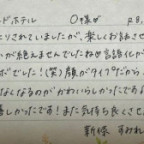 ドホテル 〇様が R8.
とりされていましたが、楽しくお話させ
いが絶えませんでしたねが言語化が
ボでした！(笑)顔がタイプだから
なくなるのがかわいらしかったです
楽しかったです！また気持ち良くさせ
新條 すみれ